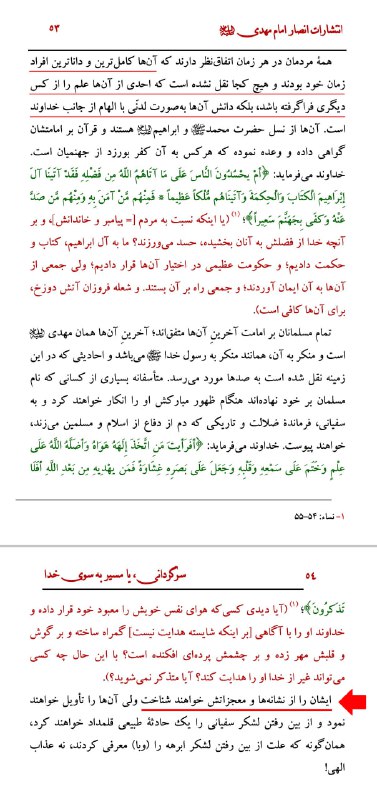 انتشارات انصار امام مهدی ۵۳
همهٔ مردمان در هر زمان اتفاق‌نظر دارند که آن‌ها کامل‌ترین و داناترین افراد
زمان خود بودند و هیچ کجا نقل نشده است که احدی از آن‌ها علم را از کس
دیگری فراگرفته باشد، بلکه دانش آن‌ها به‌صورت لدنّی با الهام از جانب خداوند
است. آن‌ها از نسل حضرت محمد و ابراهیم هستند و قرآن بر امامتشان
گواهی داده و وعده نموده که هرکس به آن کفر بورزد از جهنمیان است.
خداوند می‌فرماید: ﴿أَمْ يَحْسُدُونَ النَّاسَ عَلَى مَا آتَاهُمُ اللَّهُ مِن فَضْلِهِ فَقَدْ آتَيْنَا آلَ
إِبْرَاهِيمَ الْكِتَابَ وَالْحِكْمَةَ وَآتَيْنَاهُم مُّلْكاً عَظِيماً * فَمِنْهُم مَّنْ آمَنَ بِهِ وَمِنْهُم مَّن صَدَّ
عَنْهُ وَكَفَى بِجَهَنَّمَ سَعِيراً﴾؛ (۱) (یا اینکه نسبت به مردم [= پیامبر و خاندانش]، و بر
آنچه خدا از فضلش به آنان بخشیده، حسد می‌ورزند؟ ما به آل ابراهیم، کتاب و
حکمت دادیم؛ و حکومت عظیمی در اختیار آن‌ها قرار دادیم؛ ولی جمعی از
آن‌ها به آن ایمان آوردند؛ و جمعی راه بر آن بستند. و شعله فروزان آتش دوزخ،
برای آن‌ها کافی است).
تمام مسلمانان بر امامت آخرینِ آن‌ها متفق‌اند؛ آخرینِ آن‌ها همان مهدی
است و منکر به آن، همانند منکر به رسول خدا می‌باشد و احادیثی که در این
زمینه نقل شده است به صدها مورد می‌رسد. متأسفانه بسیاری از کسانی که نام
مسلمان بر خود نهاده‌اند هنگام ظهور مبارکش او را انکار خواهند کرد و به
سفیانی، فرماندهٔ ضلالت و تاریکی که دم از دفاع از اسلام و مسلمین می‌زند،
خواهند پیوست. خداوند می‌فرماید: ﴿أَفَرَأَيْتَ مَنِ اتَّخَذَ إِلَهَهُ هَوَاهُ وَأَضَلَّهُ اللَّهُ عَلَى
عِلْمٍ وَخَتَمَ عَلَى سَمْعِهِ وَقَلْبِهِ وَجَعَلَ عَلَى بَصَرِهِ غِشَاوَةً فَمَن يَهْدِيهِ مِن بَعْدِ اللَّهِ أَفَلَا
۱- نساء: ۵۴-۵۵
۵۴ سرگردانی، یا مسیر به سوی خدا
تَذَكَّرُونَ﴾؛ (۱) (آیا دیدی کسی‌که هوای نفس خویش را معبود خود قرار داده و
خداوند او را با آگاهی [بر اینکه شایسته هدایت نیست] گمراه ساخته و بر گوش
و قلبش مهر زده و بر چشمش پرده‌ای افکنده است؟ با این حال چه کسی
می‌تواند غیر از خدا او را هدایت کند؟ آیا متذکر نمی‌شوید؟).
ایشان را از نشانه‌ها و معجزاتش خواهند شناخت ولی آن‌ها را تأویل خواهند
نمود و از بین رفتن لشکر سفیانی را یک حادثهٔ طبیعی قلمداد خواهند کرد،
همان‌گونه که علت از بین رفتن لشکر ابرهه را (وبا) معرفی کردند، نه عذاب
الهی!